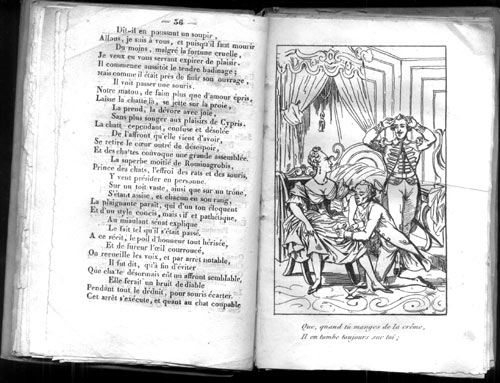 — 36 —
Dit-il en poussant un soupir,
Allons, je suis à vous, et puisqu'il faut mourir
Du moins, malgré la fortune cruelle,
Je veux en vous servant expirer de plaisir.
Il commence aussitôt le tendre badinage;
Mais comme il était près de finir son ouvrage,
Il voit passer une souris.
Notre matou, de faim plus que d'amour épris,
Laisse la chatte là, se jette sur la proie,
La prend, la dévore avec joie,
Sans plus songer aux plaisirs de Cypris.
La chatte cependant, confuse et désolée
De l'affront qu'elle vient d'avoir,
Se retire le cœur outré de désespoir,
Et des chattes convoque une grande assemblée.
La superbe moitié de Rominagrobis,
Prince des chats, l'effroi des rats et des souris,
Y vient présider en personne.
Sur un toit vaste, ainsi que sur un trône,
S'étant assise, et chacun en son rang,
La plaignante paraît, qui d'un ton éloquent
Et d'un style concis, mais vif et pathétique,
Au miaulant sénat explique
Le fait tel qu'il s'était passé.
A ce récit, le poil d'honneur tout hérissé,
Et de fureur l'œil courroucé,
On recueille les voix, et par arrêt notable,
Il fut dit, qu'à fin d'éviter
Que chatte désormais eût un affront semblable,
Elle ferait un bruit de diable
Pendant tout le déduit, pour souris écarter.
Cet arrêt s'exécute, et quant au chat coupable
Que, quand tu manges de la crême,
Il en tombe toujours sur toi;